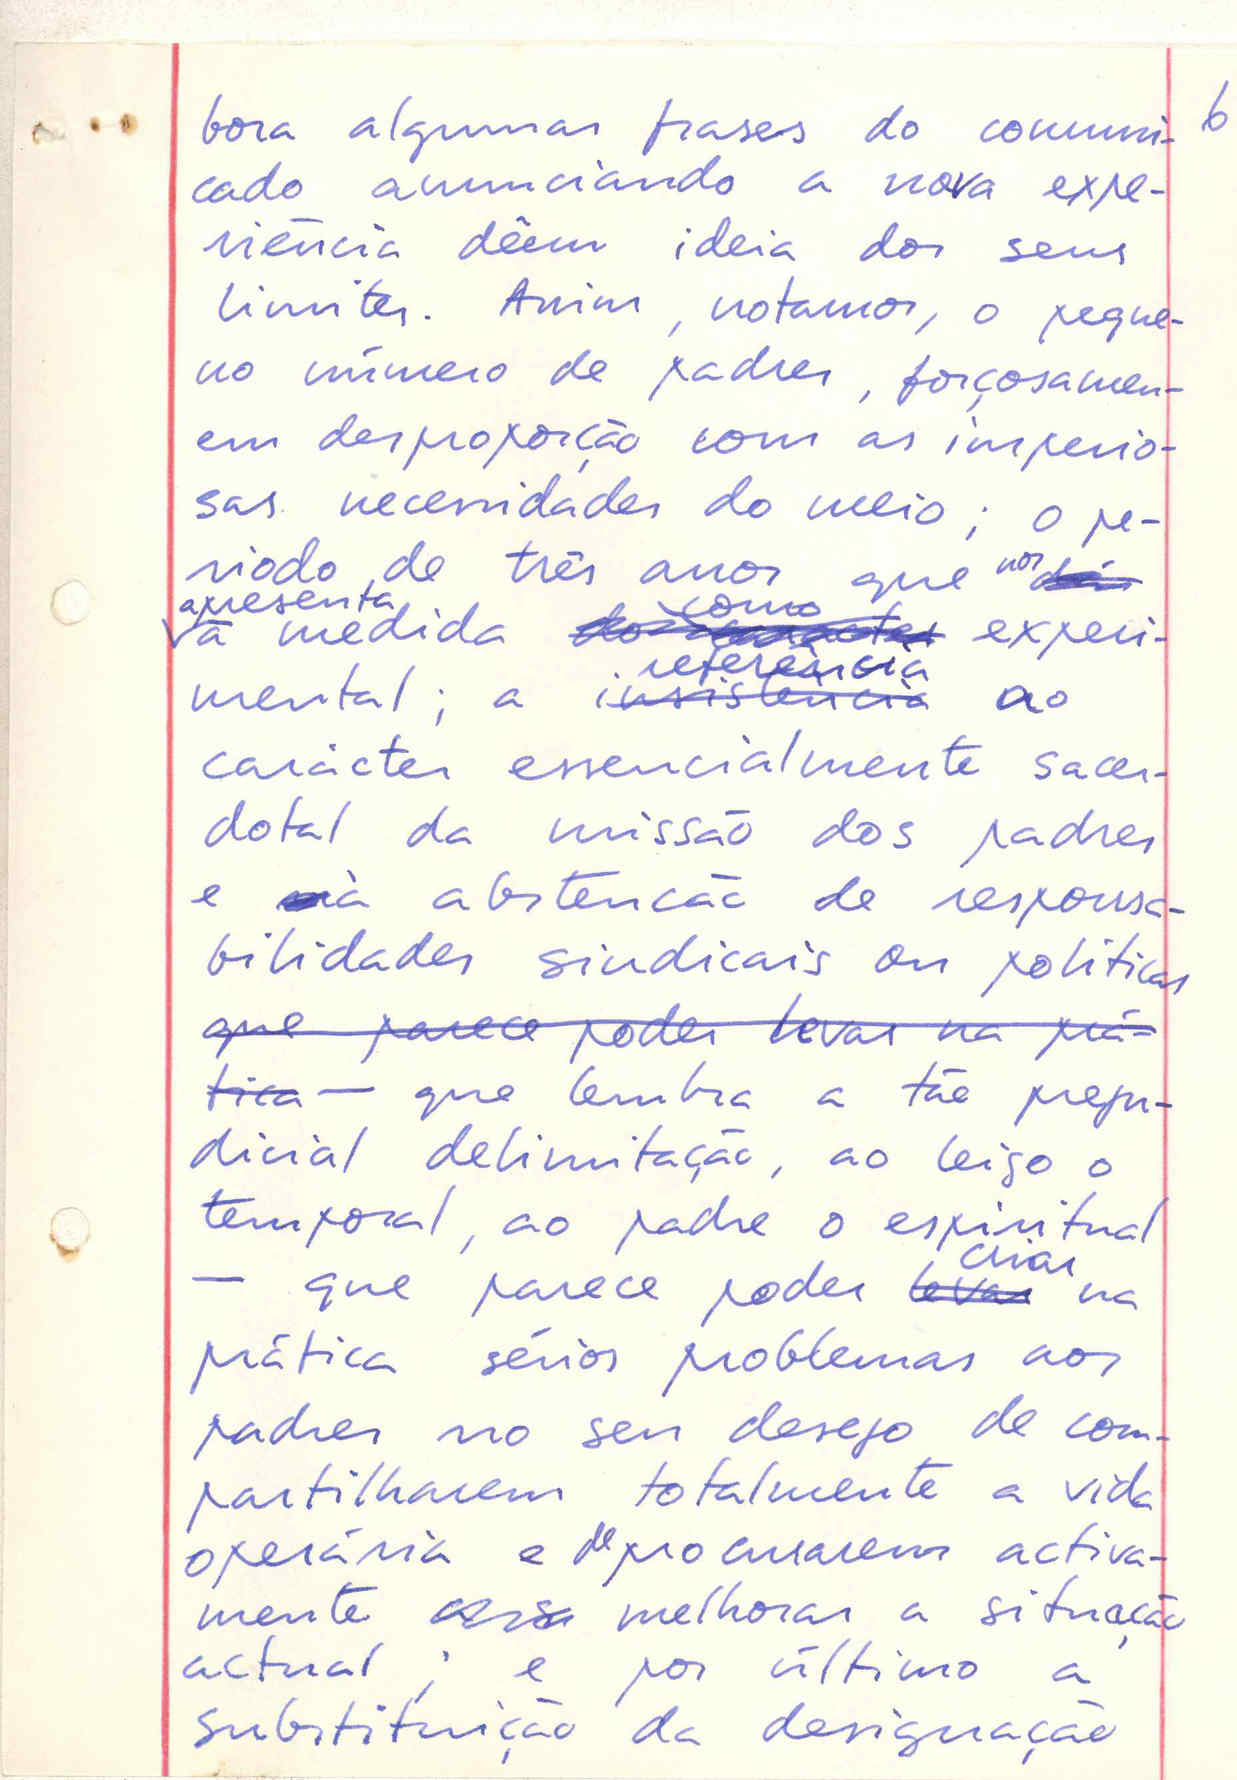 b
bora algumas frases do comuni-
cado anunciando a nova expe-
riência dêem ideia dos seus
limites. Assim, notamos, o peque-
no número de padres, forçosamen-
em desproporção com as imperio-
sas necessidades do meio; o pe-
ríodo de três anos que nos dá
apresenta como
à medida do carácter experi-
referência
mental; a insistência ao
carácter essencialmente sacer-
dotal da missão dos padres
e à abstenção de responsa-
bilidades sindicais ou políticas
que parece poder levar na prá-
tica — que lembra a tão preju-
dicial delimitação, ao leigo o
temporal, ao padre o espiritual
criar
— que parece poder levar na
prática sérios problemas aos
padres no seu desejo de com-
partilharem totalmente a vida
operária e de procurarem activa-
mente melhorar a situação
actual; e por último a
substituição da designação